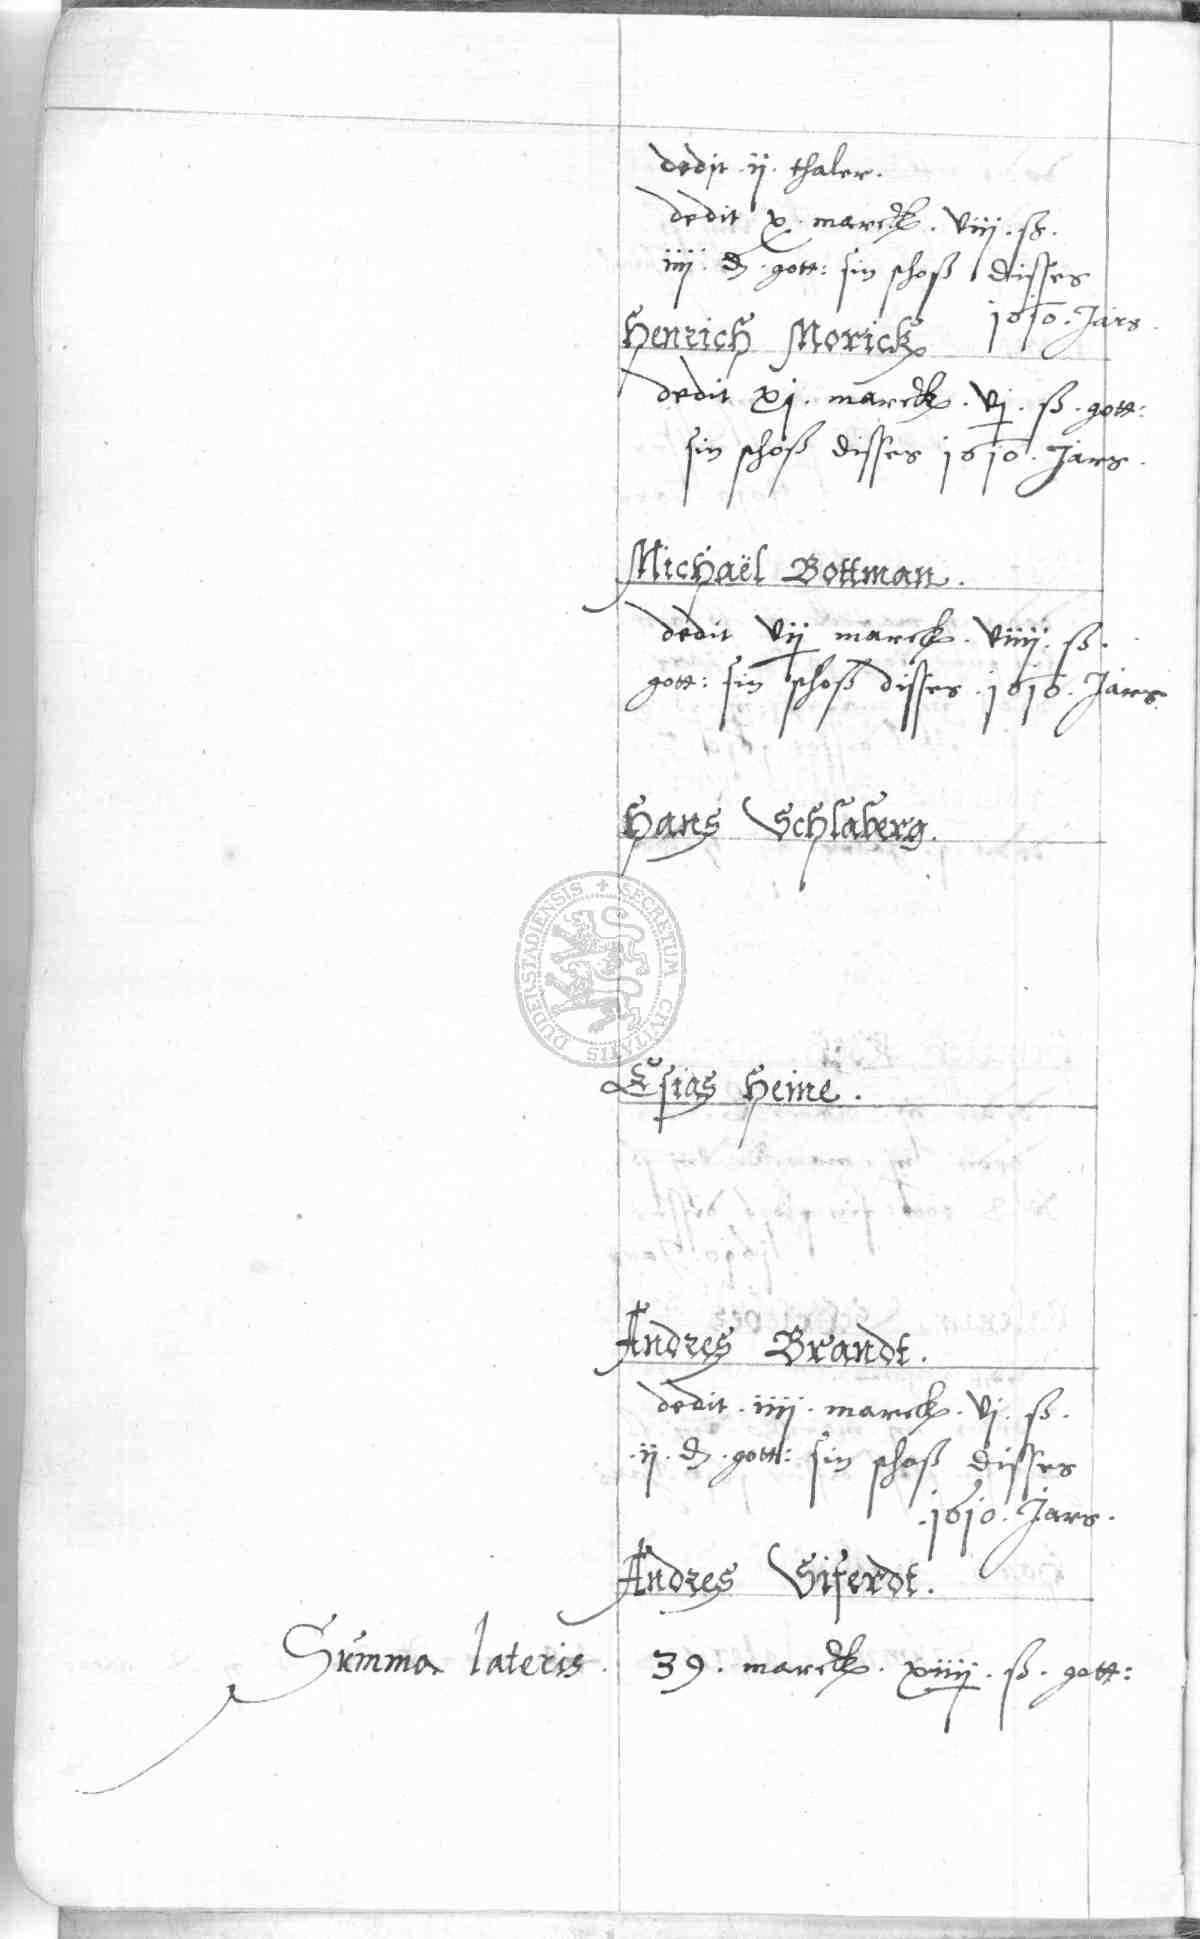 dedit · ij · thaler ·
dedit x · marck · viij · ß ·
iiij · ₰ · gott: sin schoß disses
1610 · Jars ·
Henrich Morick
dedit xj · marck · vj · ß · gott:
sin schoß disses 1610 · Jars ·
Michaël Bottman ·
dedit vij marck · viiij · ß ·
gott: sin schoß disses · 1610 · Jars
Hans Schlaberg ·
DUDERSTADIENSIS + SECRETUM CIVITATIS
Esias Heine ·
Andres Brandt ·
dedit · iiij · marck · vj · ß ·
· ij · ₰ · gott: sin schoß disses
· 1610 · Jars ·
Andres Siferdt ·
Summa lateris · 39 · marck · xiiij · ß · gott: